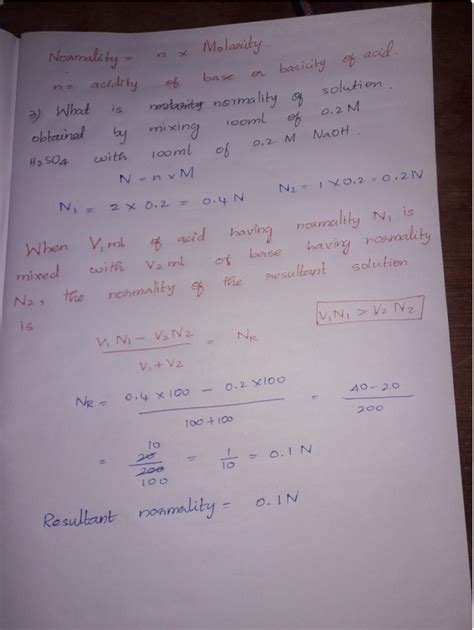 Normality = n × Molarity.
n = acidity of base or basicity of acid.
3) What is molarity normality of solution
obtained by mixing 100ml of 0.2M
H₂SO4 with 100ml of 0.2 M NaOH.
N = n × M
N₁ = 2 × 0.2 = 0.4 N N₂ = 1 × 0.2 = 0.2N
When V₁ ml of acid having normality N₁ is
mixed with V₂ ml of base having normality
N₂, the normality of the resultant solution
is
V₁N₁ > V₂N₂
V₁ N₁ - V₂ N₂ / V₁ + V₂ = NR
NR = 0.4 × 100 - 0.2 × 100 / 100 + 100 = 40 - 20 / 200
= 10 20 / 200 100 = 1/10 = 0.1 N
Resultant normality = 0.1N